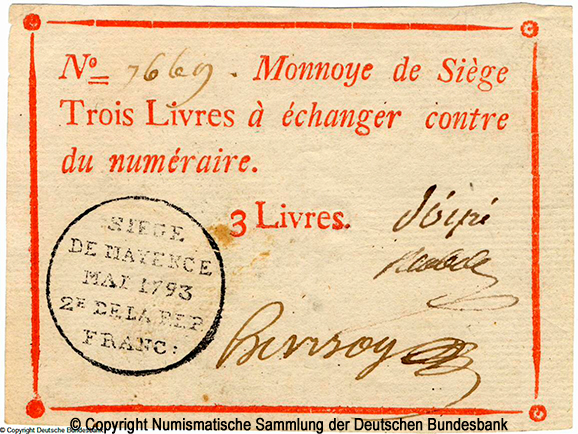 No 7669. Monnoye de Siège
Trois Livres à échanger contre
du numéraire.
3 Livres.
SIEGE
DE MAYENCE
MAI 1793
2E DE LA REP
FRANC:
© Copyright Numismatische Sammlung der Deutschen Bundesbank
© Copyright Deutsche Bundesbank